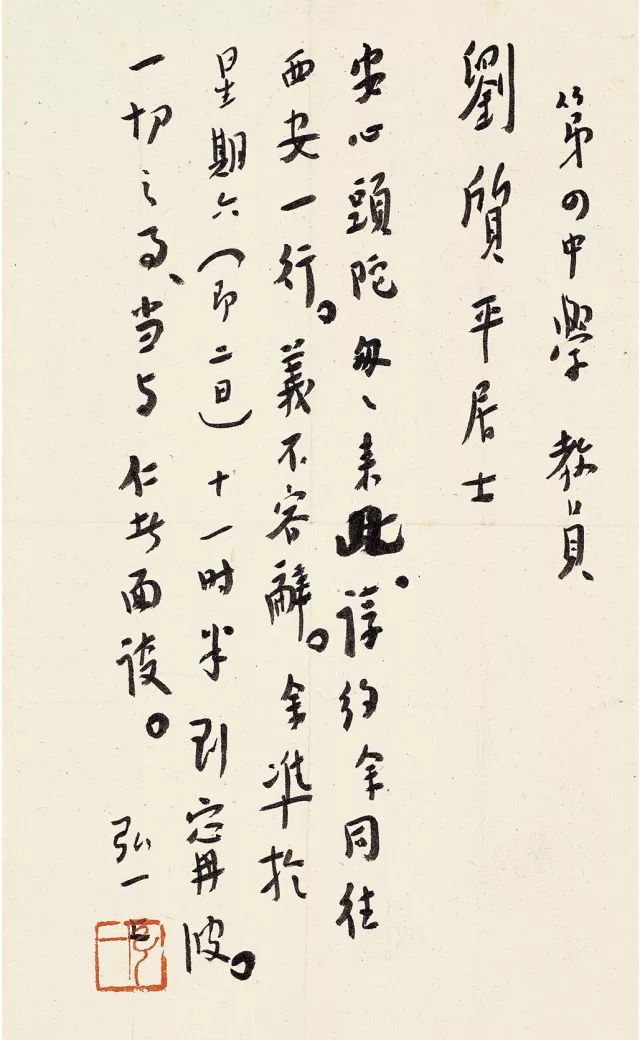 第四中學 教員
劉質平居士
安心頭陀匆、来此。諄约余同往
西安一行。義不容辭。余準於
星期六（即二日）十一时半到宁再波。
一切之事、当与仁者面谈。
弘一